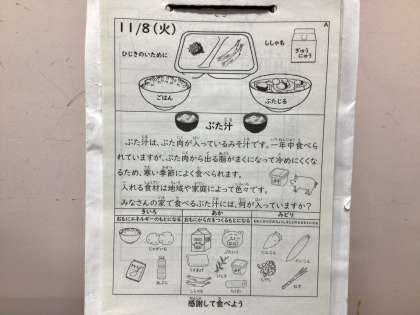 11/8(火)
A
ひじきのいために
ししゃも
ぎゅう
にゅう
ごはん
ぶたじる
ぶた汁
ぶた汁は、ぶた肉が入っているみそ汁です。一年中食べら
れていますが、ぶた肉から出る脂がまくになって冷めにくくな
るため、寒い季節によく食べられます。
入れる食材は地域や家庭によって色々です。
みなさんの家で食べるぶた汁には、何が入っていますか?
きいろ
あか
みどり
おもにエネルギーのもとになる
おもにからだをつくるもとになる
じゃがいも
あぶら
ぶたにく
ひじき
ししゃも
にんじん
だいこん
ねぎ
感謝して食べよう